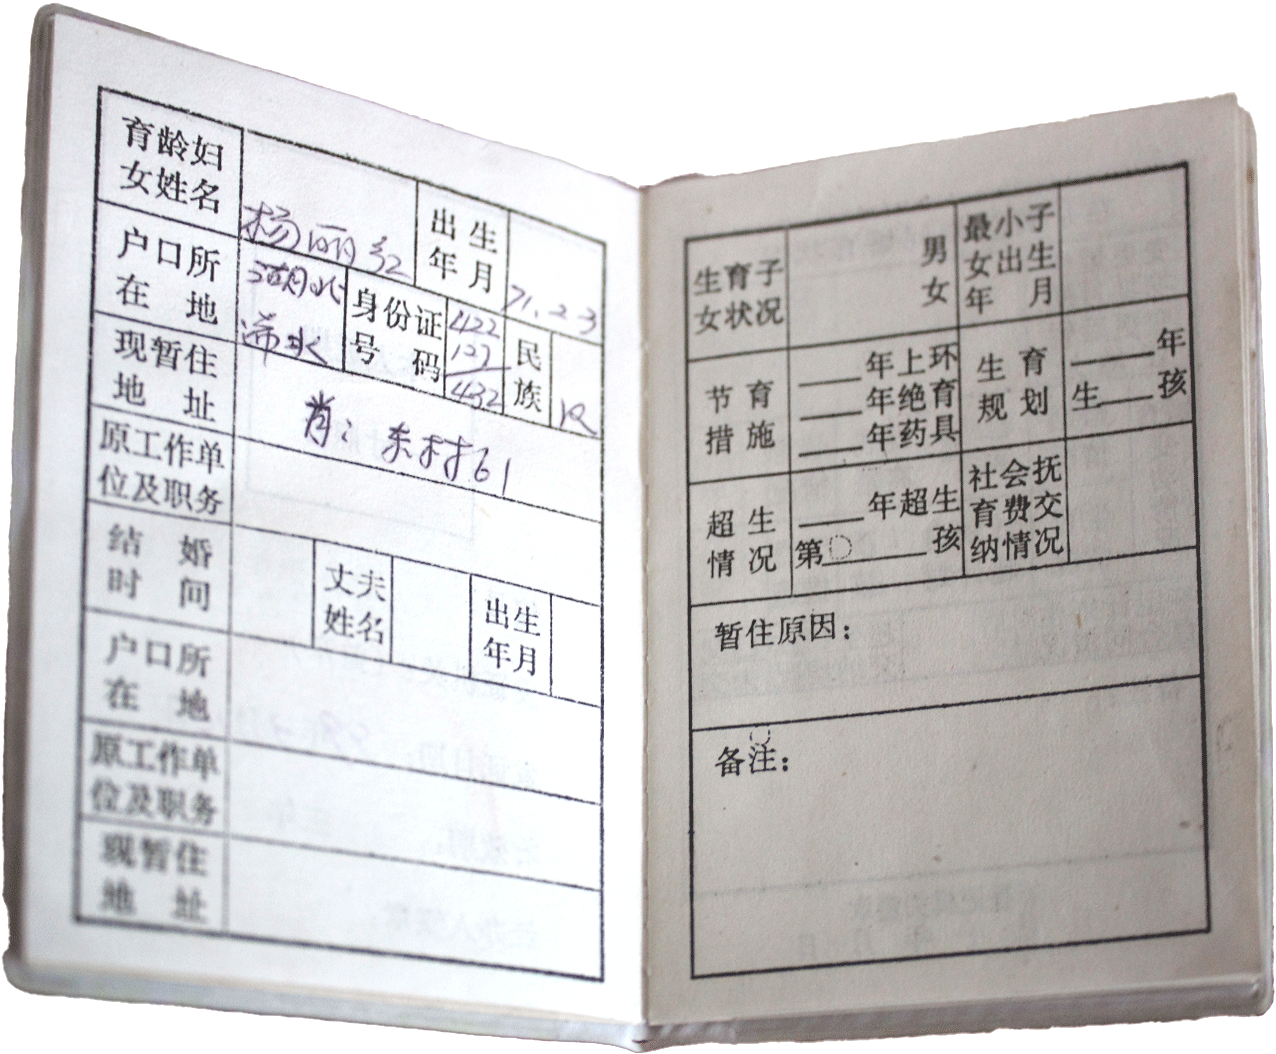 育龄妇
女姓名
杨丽红
出生
年月
71.2.3
户口所
在地
湖北
浠水
身份证
号码
422
127
432
民
族
汉
现暂住
地址
肖:东村61
原工作单
位及职务
结婚
时间
丈夫
姓名
出生
年月
户口所
在地
原工作单
位及职务
现暂住
地址
生育子
女状况
男
女
最小子
女出生
年月
节育
措施
____年上环
____年绝育
____年药具
生育
规划
____年
生____孩
超生
情况
____年超生
第______孩
社会抚
育费交
纳情况
暂住原因:
备注: